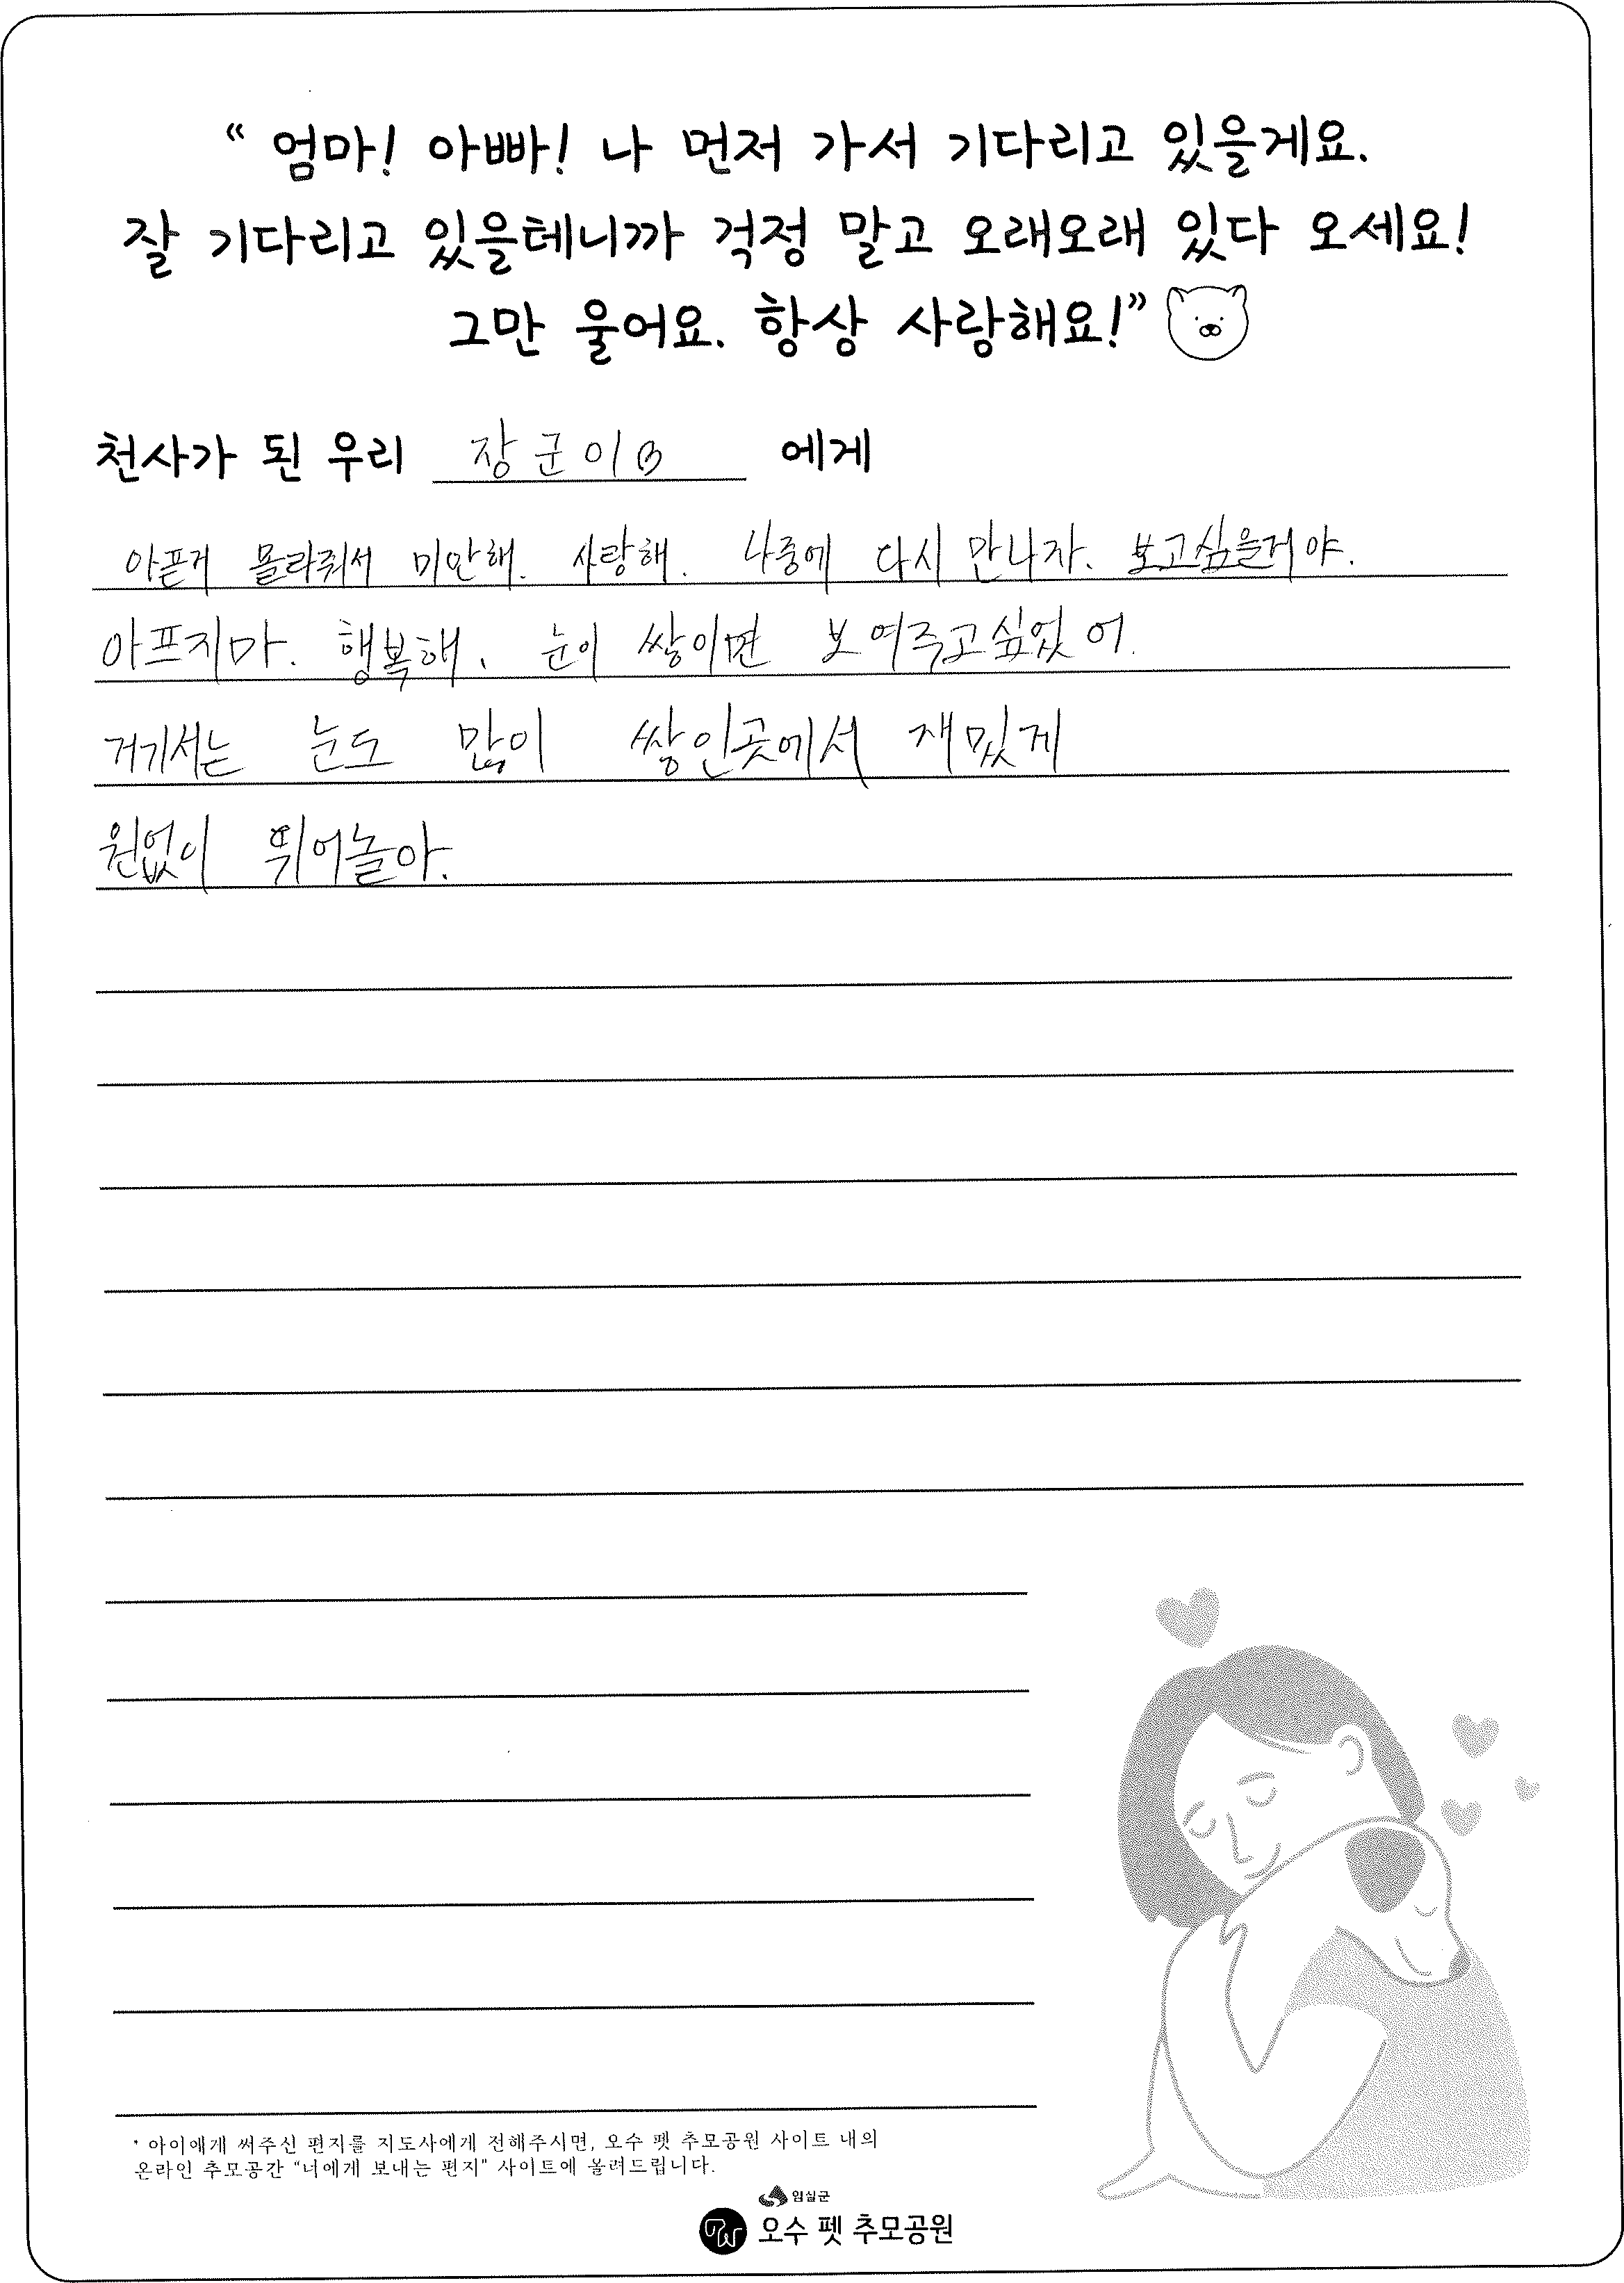 “ 엄마! 아빠! 나 먼저 가서 기다리고 있을게요.
잘 기다리고 있을테니까 걱정 말고 오래오래 있다 오세요!
그만 울어요. 항상 사랑해요!”
천사가 된 우리 장군이 에게
아픈거 몰라줘서 미안해. 사랑해. 나중에 다시 만나자. 보고싶을거야.
아프지마. 행복해. 눈이 쌓이면 보여주고싶었어.
거기서는 눈도 많이 쌓인곳에서 재밌게
원없이 뛰어놀아.
* 아이에게 써주신 편지를 지도사에게 전해주시면, 오수 펫 추모공원 사이트 내의
온라인 추모공간 “너에게 보내는 편지” 사이트에 올려드립니다.
임실군
오수 펫 추모공원